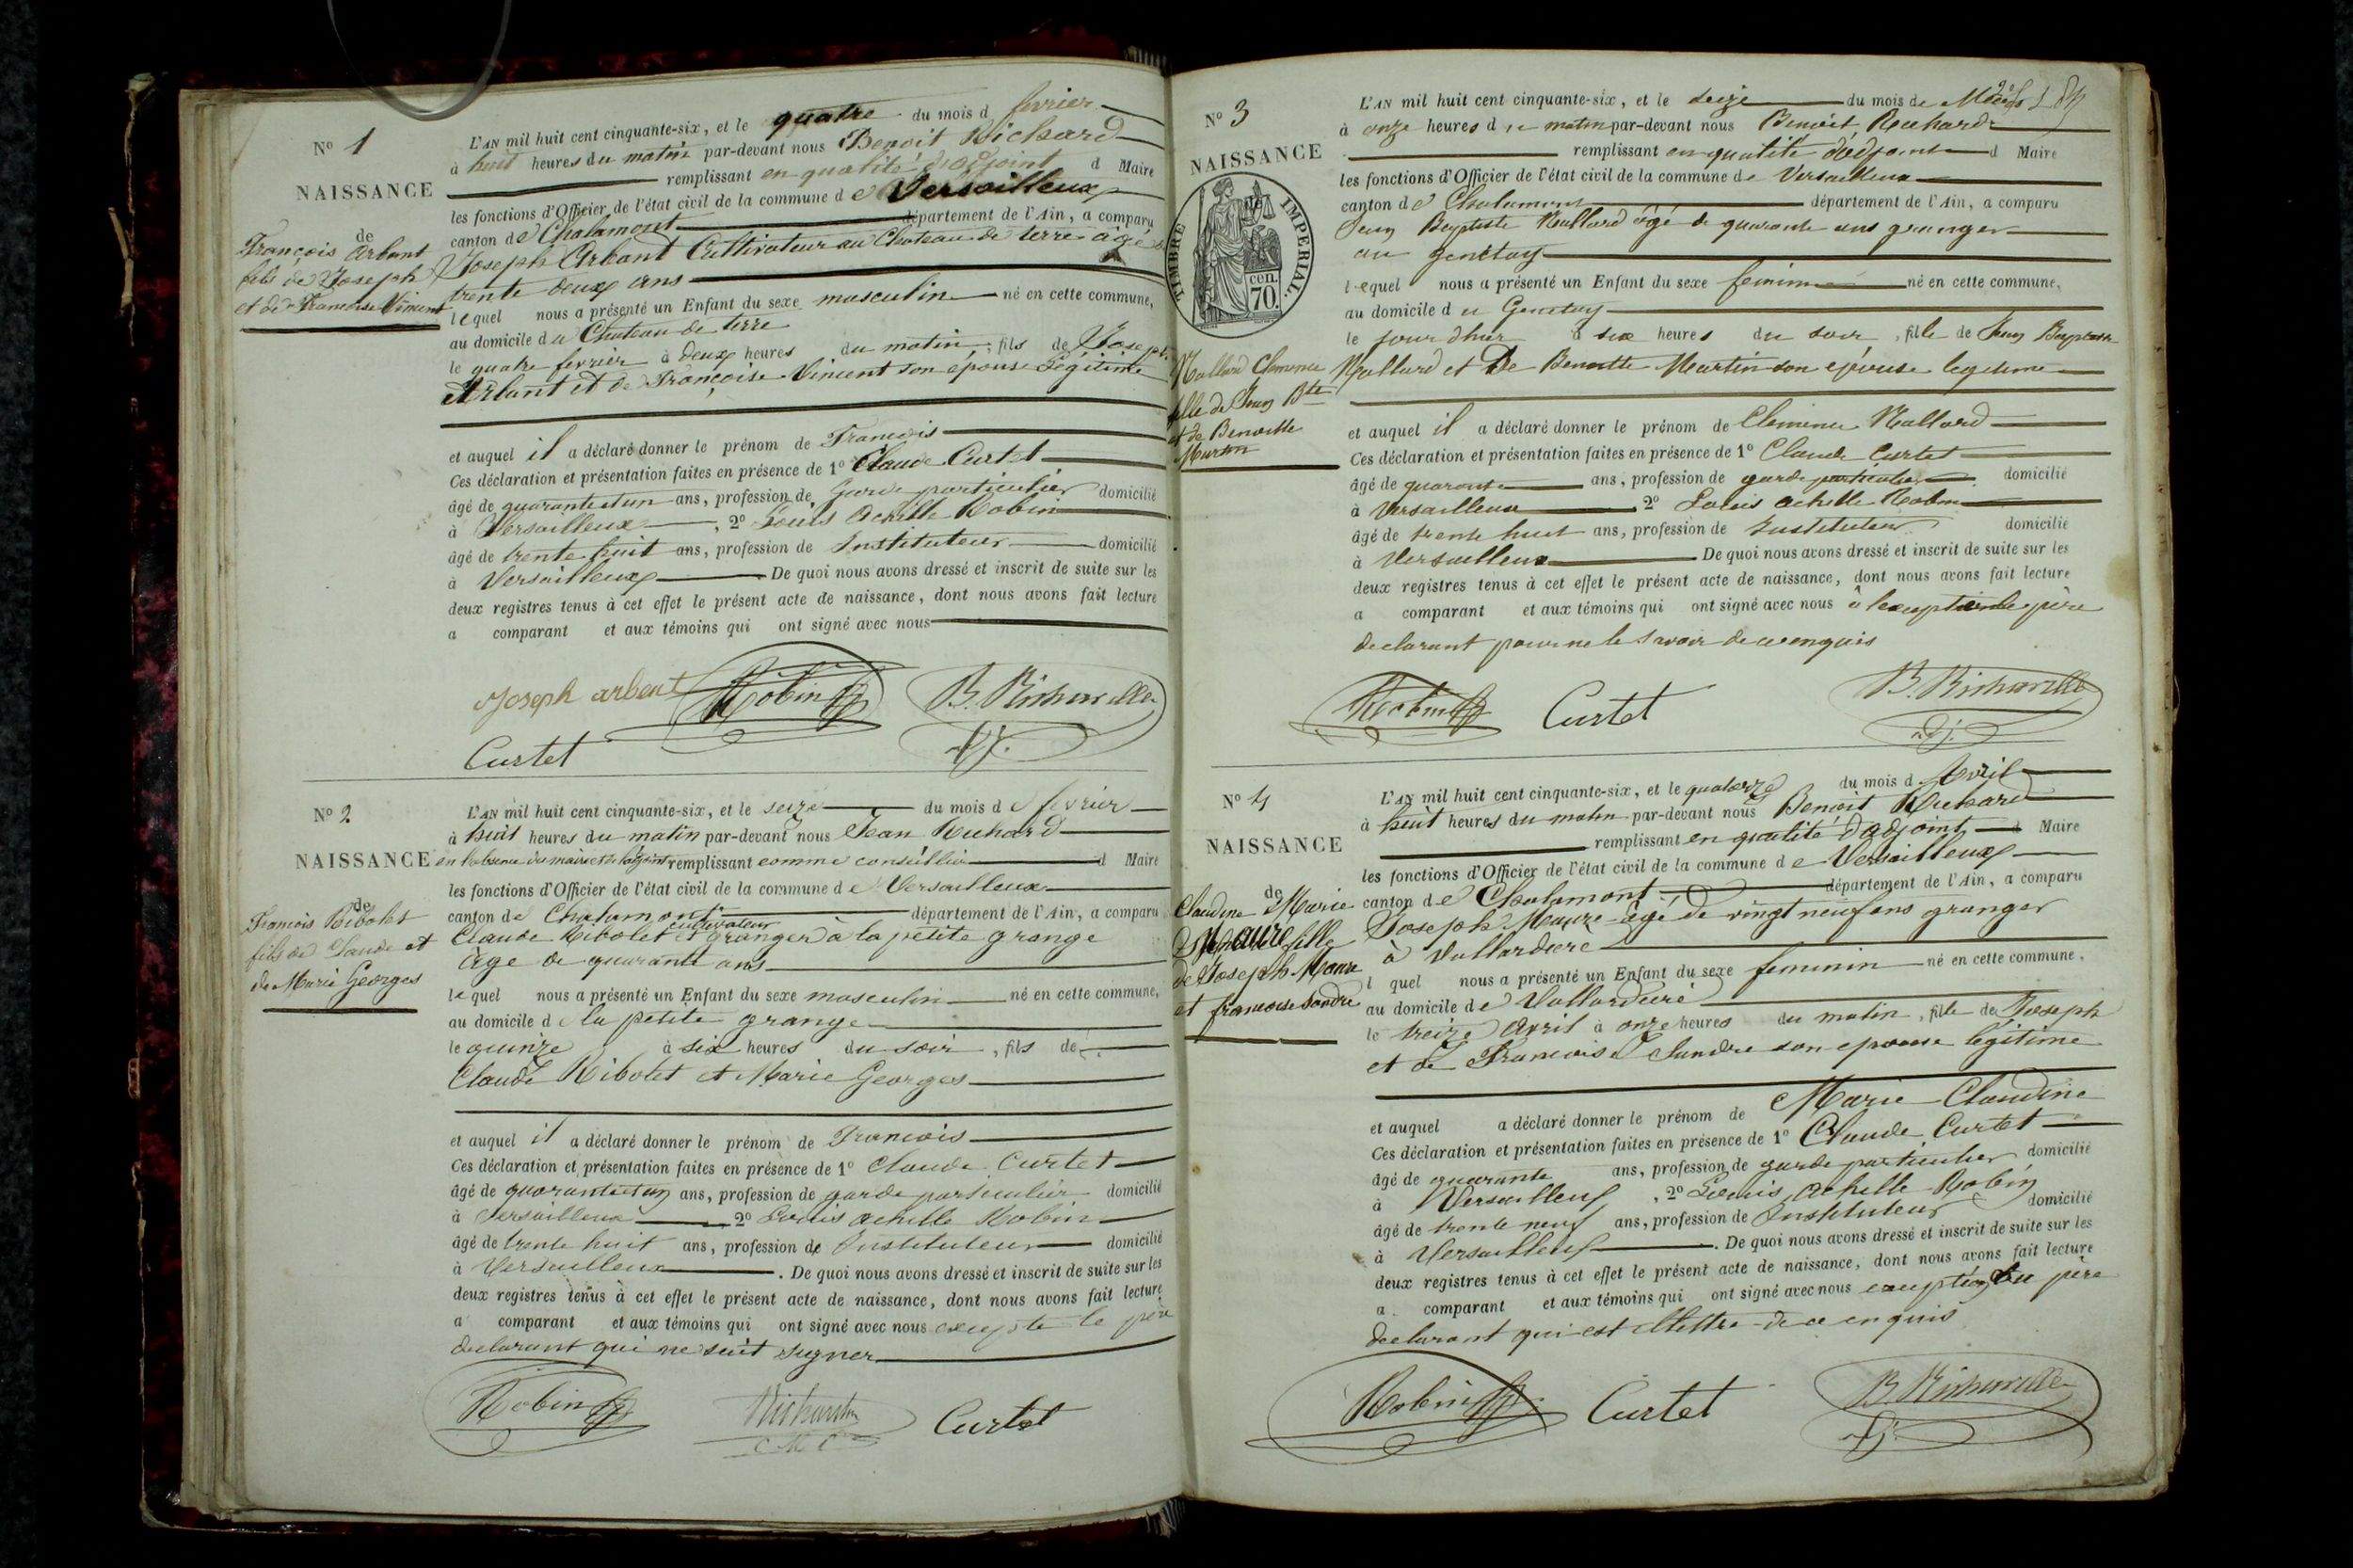 N° 1
NAISSANCE
de
François Arbant
fils de Joseph
et de Francoise Vincent
L'AN mil huit cent cinquante-six, et le quatre du mois d fevrier
à huit heures du matin par-devant nous Benoit Richard
remplissant en qualité d'adjoint d Maire
les fonctions d'Officier de l'état civil de la commune de Versailleux
canton de Chalamont département de l'Ain, a comparu
Joseph Arbant Cultivateur au Chateau de terre âgé de
trente deux ans
lequel nous a présenté un Enfant du sexe masculin né en cette commune,
au domicile du Chateau de terre
le quatre fevrier à deux heures du matin, fils de Joseph
Arbant et de Françoise Vincent son épouse Légitime
et auquel il a déclaré donner le prénom de Francois
Ces déclaration et présentation faites en présence de 1° Claude Curtet
âgé de quarante et un ans, profession de Garde particulier domicilié
à Versailleux, 2° Louis Achille Robin
âgé de trente huit ans, profession de Instituteur domicilié
à Versailleux De quoi nous avons dressé et inscrit de suite sur les
deux registres tenus à cet effet le présent acte de naissance, dont nous avons fait lecture
a comparant et aux témoins qui ont signé avec nous
Joseph arbant Robin B. Richard
Curtet
N° 2
NAISSANCE
de
Francois Ribolet
fils de Claude et
de Marie Georges
L'AN mil huit cent cinquante-six, et le seize du mois de fevrier
à huit heures du matin par-devant nous Jean Richard
en l'absence du maire et de l'adjoint remplissant comme conseiller d Maire
les fonctions d'Officier de l'état civil de la commune de Versailleux
canton de Chalamont département de l'Ain, a comparu
cultivateur
Claude Ribolet granger à la petite grange
âge de quarante ans
lequel nous a présenté un Enfant du sexe masculin né en cette commune,
au domicile de la petite grange
le quinze à six heures du soir, fils de
Claude Ribolet et Marie Georges
et auquel il a déclaré donner le prénom de Francois
Ces déclaration et présentation faites en présence de 1° Claude Curtet
âgé de quarante et un ans, profession de garde particulier domicilié
à Versailleux 2° Louis achille Robin
âgé de trente huit ans, profession de Instituteur domicilié
à Versailleux. De quoi nous avons dressé et inscrit de suite sur les
deux registres tenus à cet effet le présent acte de naissance, dont nous avons fait lecture
a comparant et aux témoins qui ont signé avec nous excepte le père
declarant qui ne sait signer
Robin Richard Curtet
C M C
N° 3
NAISSANCE
TIMBRE IMPERIAL
70 cen.
Mallard Clemence
fille de Jean Bte
et de Benoitte
Martin
L'AN mil huit cent cinquante-six, et le seize du mois de
à onze heures du matin par-devant nous Benoit Richard
remplissant en qualité d'adjoint d Maire
les fonctions d'Officier de l'état civil de la commune de Versailleux
canton de Chalamont département de l'Ain, a comparu
Jean Baptiste Mallard âgé de quarante ans granger
au genetay
lequel nous a présenté un Enfant du sexe feminin né en cette commune,
au domicile du Genetay
le jour dhier à six heures du soir, fille de Jean Baptiste
Mallard et De Benoitte Martin son épouse legitime
et auquel il a déclaré donner le prénom de Clemence Mallard
Ces déclaration et présentation faites en présence de 1° Claude Curtet
âgé de quarante ans, profession de garde particulier domicilié
à Versailleux 2° Louis achille Robin
âgé de trente huit ans, profession de Instituteur domicilié
à Versailleux De quoi nous avons dressé et inscrit de suite sur les
deux registres tenus à cet effet le présent acte de naissance, dont nous avons fait lecture
a comparant et aux témoins qui ont signé avec nous à l'exception du père
declarant pour ne le savoir de ce enquis
Robin Curtet B. Richard
adj.
N° 4
NAISSANCE
de
Claudine Marie
Maure fille
de Joseph Maure
et francoise Sandre
L'AN mil huit cent cinquante-six, et le quatorze du mois d Avril
à huit heures du matin par-devant nous Benoit Richard
remplissant en qualité d'adjoint d Maire
les fonctions d'Officier de l'état civil de la commune de Versailleux
canton de Chalamont département de l'Ain, a comparu
Joseph Maure âgé de vingt neuf ans granger
à Vallardiere
l quel nous a présenté un Enfant du sexe feminin né en cette commune,
au domicile de Vallardiere
le treize Avril à onze heures du matin, fille de Joseph
et de Francoise Sandre son epouse légitime
et auquel a déclaré donner le prénom de Marie Claudine
Ces déclaration et présentation faites en présence de 1° Claude Curtet
âgé de quarante ans, profession de garde particulier domicilié
à Versailleux, 2° Louis Achille Robin
âgé de trente neuf ans, profession de Instituteur domicilié
à Versailleux. De quoi nous avons dressé et inscrit de suite sur les
deux registres tenus à cet effet le présent acte de naissance, dont nous avons fait lecture
a comparant et aux témoins qui ont signé avec nous exception du père
declarant qui est illettre de ce enquis
Robin Curtet B. Richard